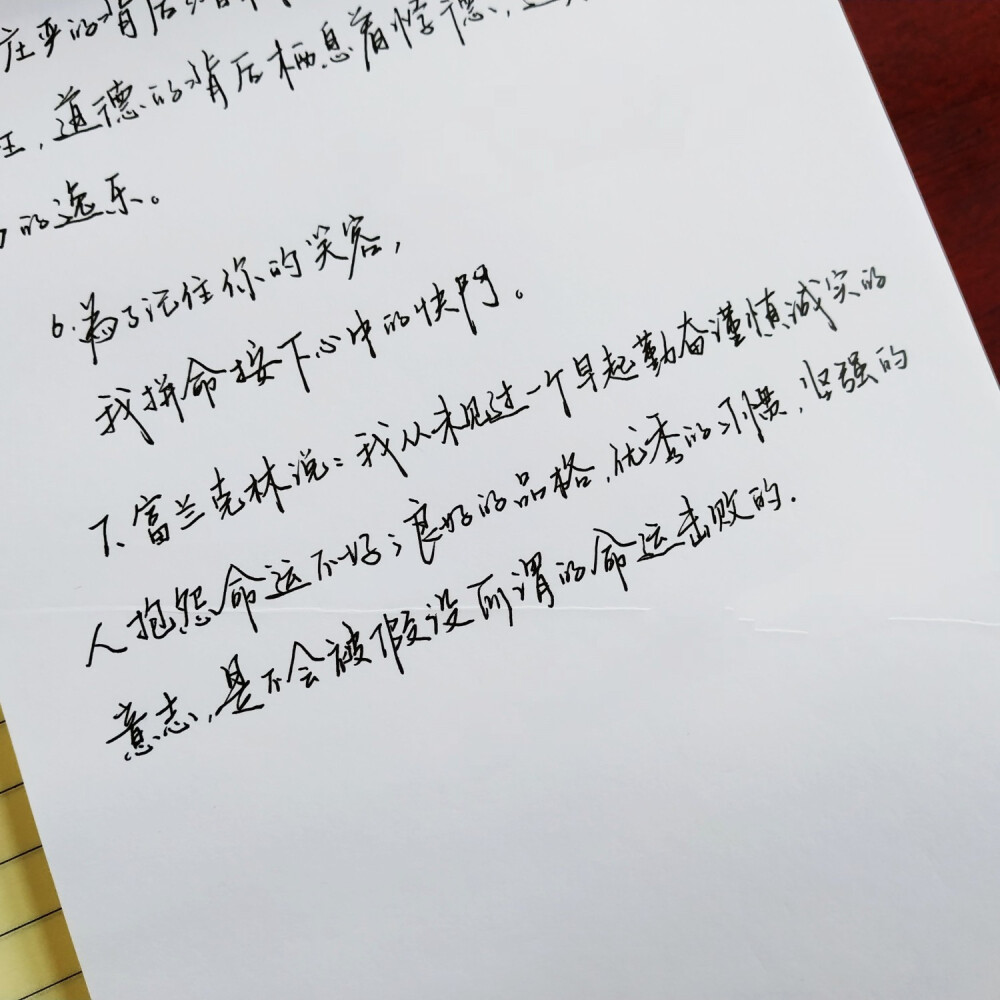 庄严的背后
,道德的背后栖息着悖德,
的逸乐。
6.為了记住你的笑容,
我拼命按下心中的快門。
7、富兰克林说:我从未见过一个早起勤奋谨慎诚实的
人抱怨命运不好;良好的品格,优秀的习惯,坚强的
意志,是不会被假设所谓的命运击败的.